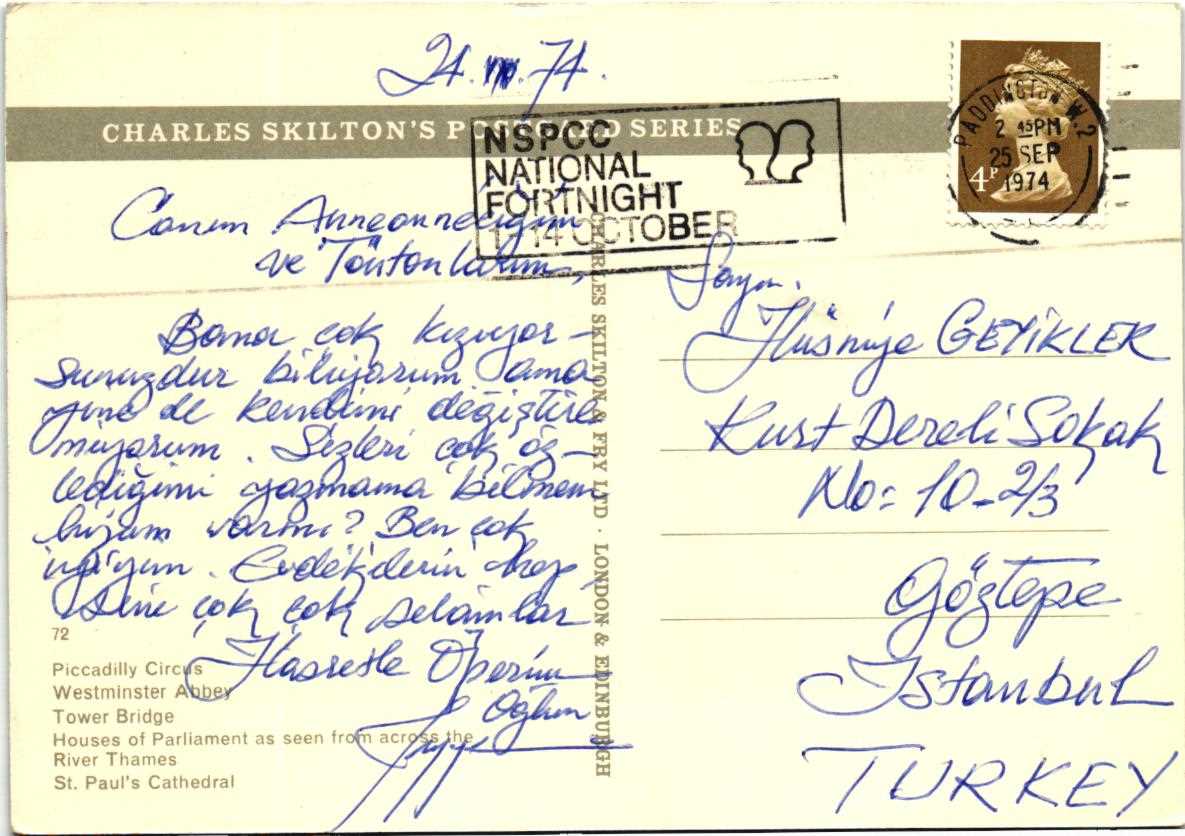 24. 74.
CHARLES SKILTON'S POSTCARD SERIES
NSPCC
NATIONAL
FORTNIGHT
1-14 OCTOBER
PADDINGTON W.2
2 45PM
25 SEP
1974
4P
Canım Anneanneciğim
ve Tontonlarım,
Bana çok kızıyor-
sunuzdur biliyorum ama
yine de kendimi değiştire
miyorum. Sizleri çok öz-
lediğimi yazmama bilmem
lüzum varmı? Ben çok
iyiyim. Evdekilerin hep
sine çok çok selamlar
Hasretle Öperim
Oğlun
72
Piccadilly Circus
Westminster Abbey
Tower Bridge
Houses of Parliament as seen from across the
River Thames
St. Paul's Cathedral
CHARLES SKILTON & FRY LTD · LONDON & EDINBURGH
Sayın.
Hüsniye GEYİKLER
Kurt Dereli Sokak
No: 10-2/3
Göztepe
İstanbul
TURKEY